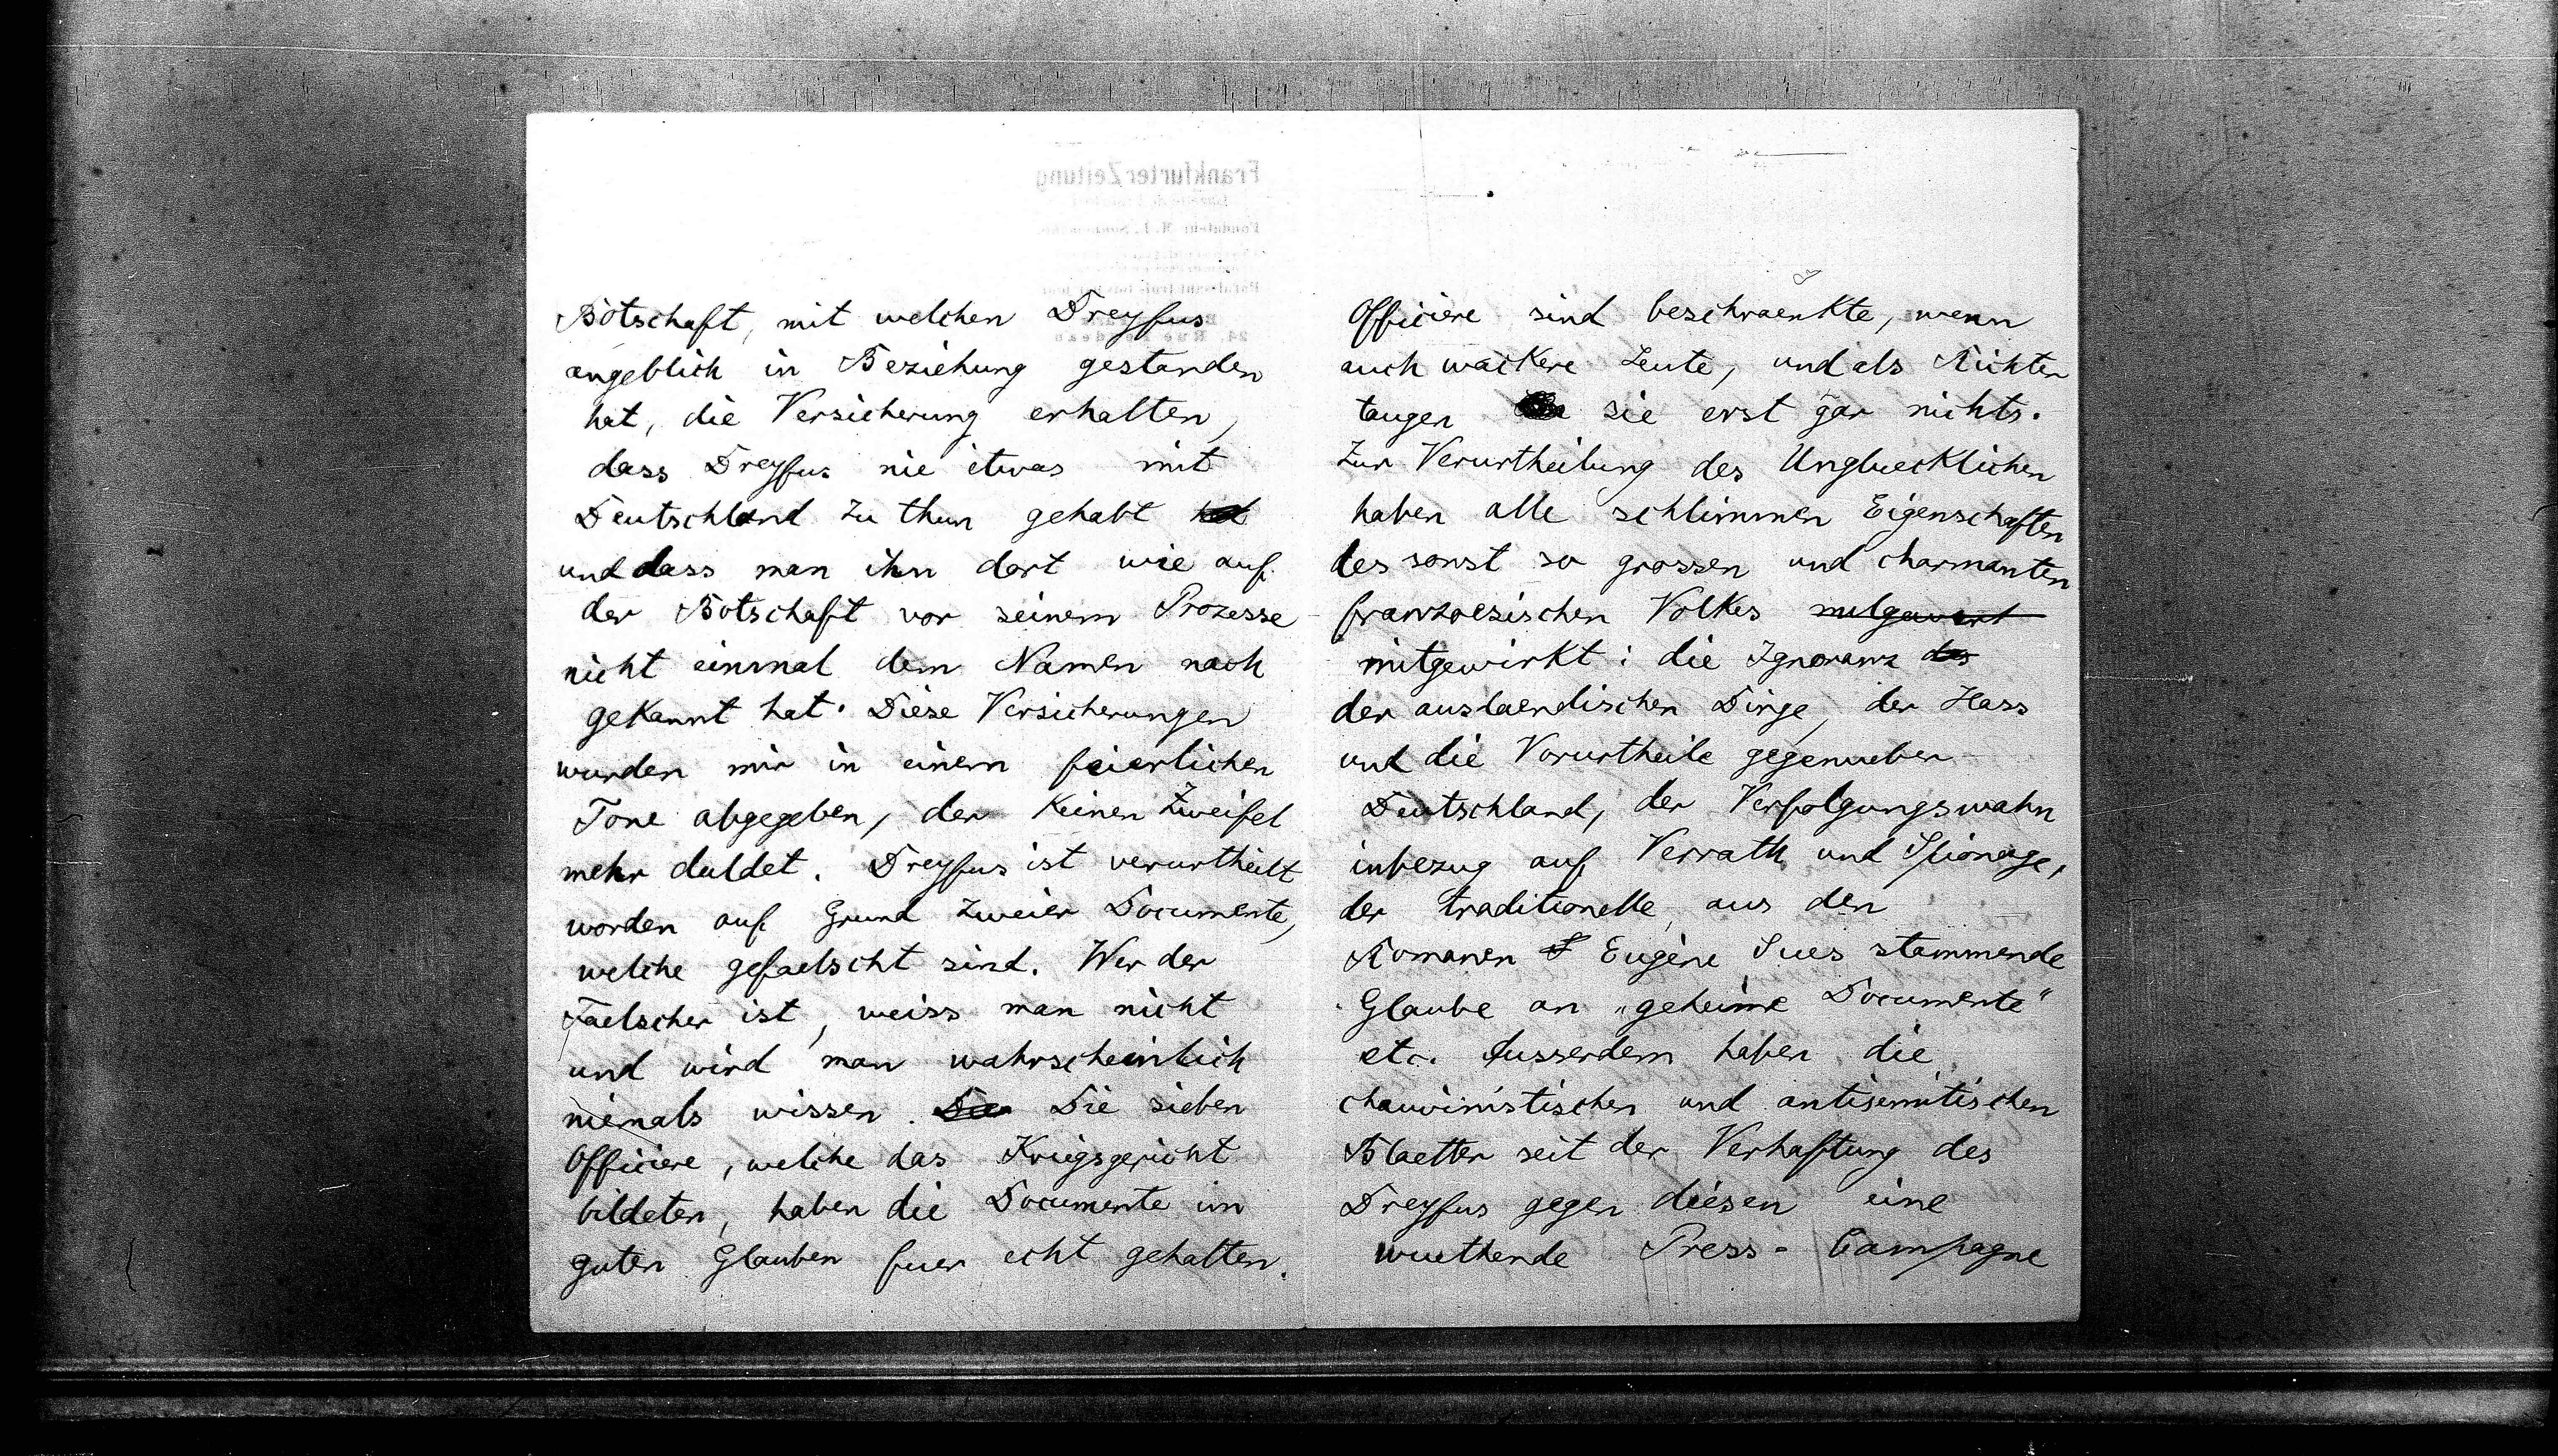 Botschaft, mit welchen Dreyfus
angeblich in Beziehung gestanden
hat, die Versicherung erhalten,
dass Dreyfus nie etwas mit
Deutschland zu thun gehabt hat
und dass man ihn dort wie auf
der Botschaft vor seinem Prozesse
nicht einmal dem Namen nach
gekannt hat. Diese Versicherungen
wurden mir in einem feierlichen
Tone abgegeben, der keinen Zweifel
mehr duldet. Dreyfus ist verurtheilt
worden auf Grund zweier Documente,
welche gefaelscht sind. Wer der
Faelscher ist, weiss man nicht
und wird man wahrscheinlich
niemals wissen. Die sieben
Officiere, welche das Kriegsgericht
bildeten, haben die Documente im
guten Glauben fuer echt gehalten.
Officiere sind beschraenkte, wenn
auch wackere Leute, und als Richter
taugen sie erst gar nichts.
Zur Verurtheilung des Ungluecklichen
haben alle schlimmen Eigenschaften
des sonst so grossen und charmanten
franzoesischen Volkes
mitgewirkt: die Ignoranz des
der auslaendischen Dinge, der Hass
und die Vorurtheile gegenueber
Deutschland, der Verfolgungswahn
inbezug auf Verrath und Spionage,
der traditionelle, aus den
Romanen S Eugène Sues stammende
Glaube an „geheime Documente“
etc. Ausserdem haben die
chauvinistischen und antisemitischen
Blaetter seit der Verhaftung des
Dreyfus gegen diesen eine
wuethende Press-Campagne
Frankfurter Zeitung